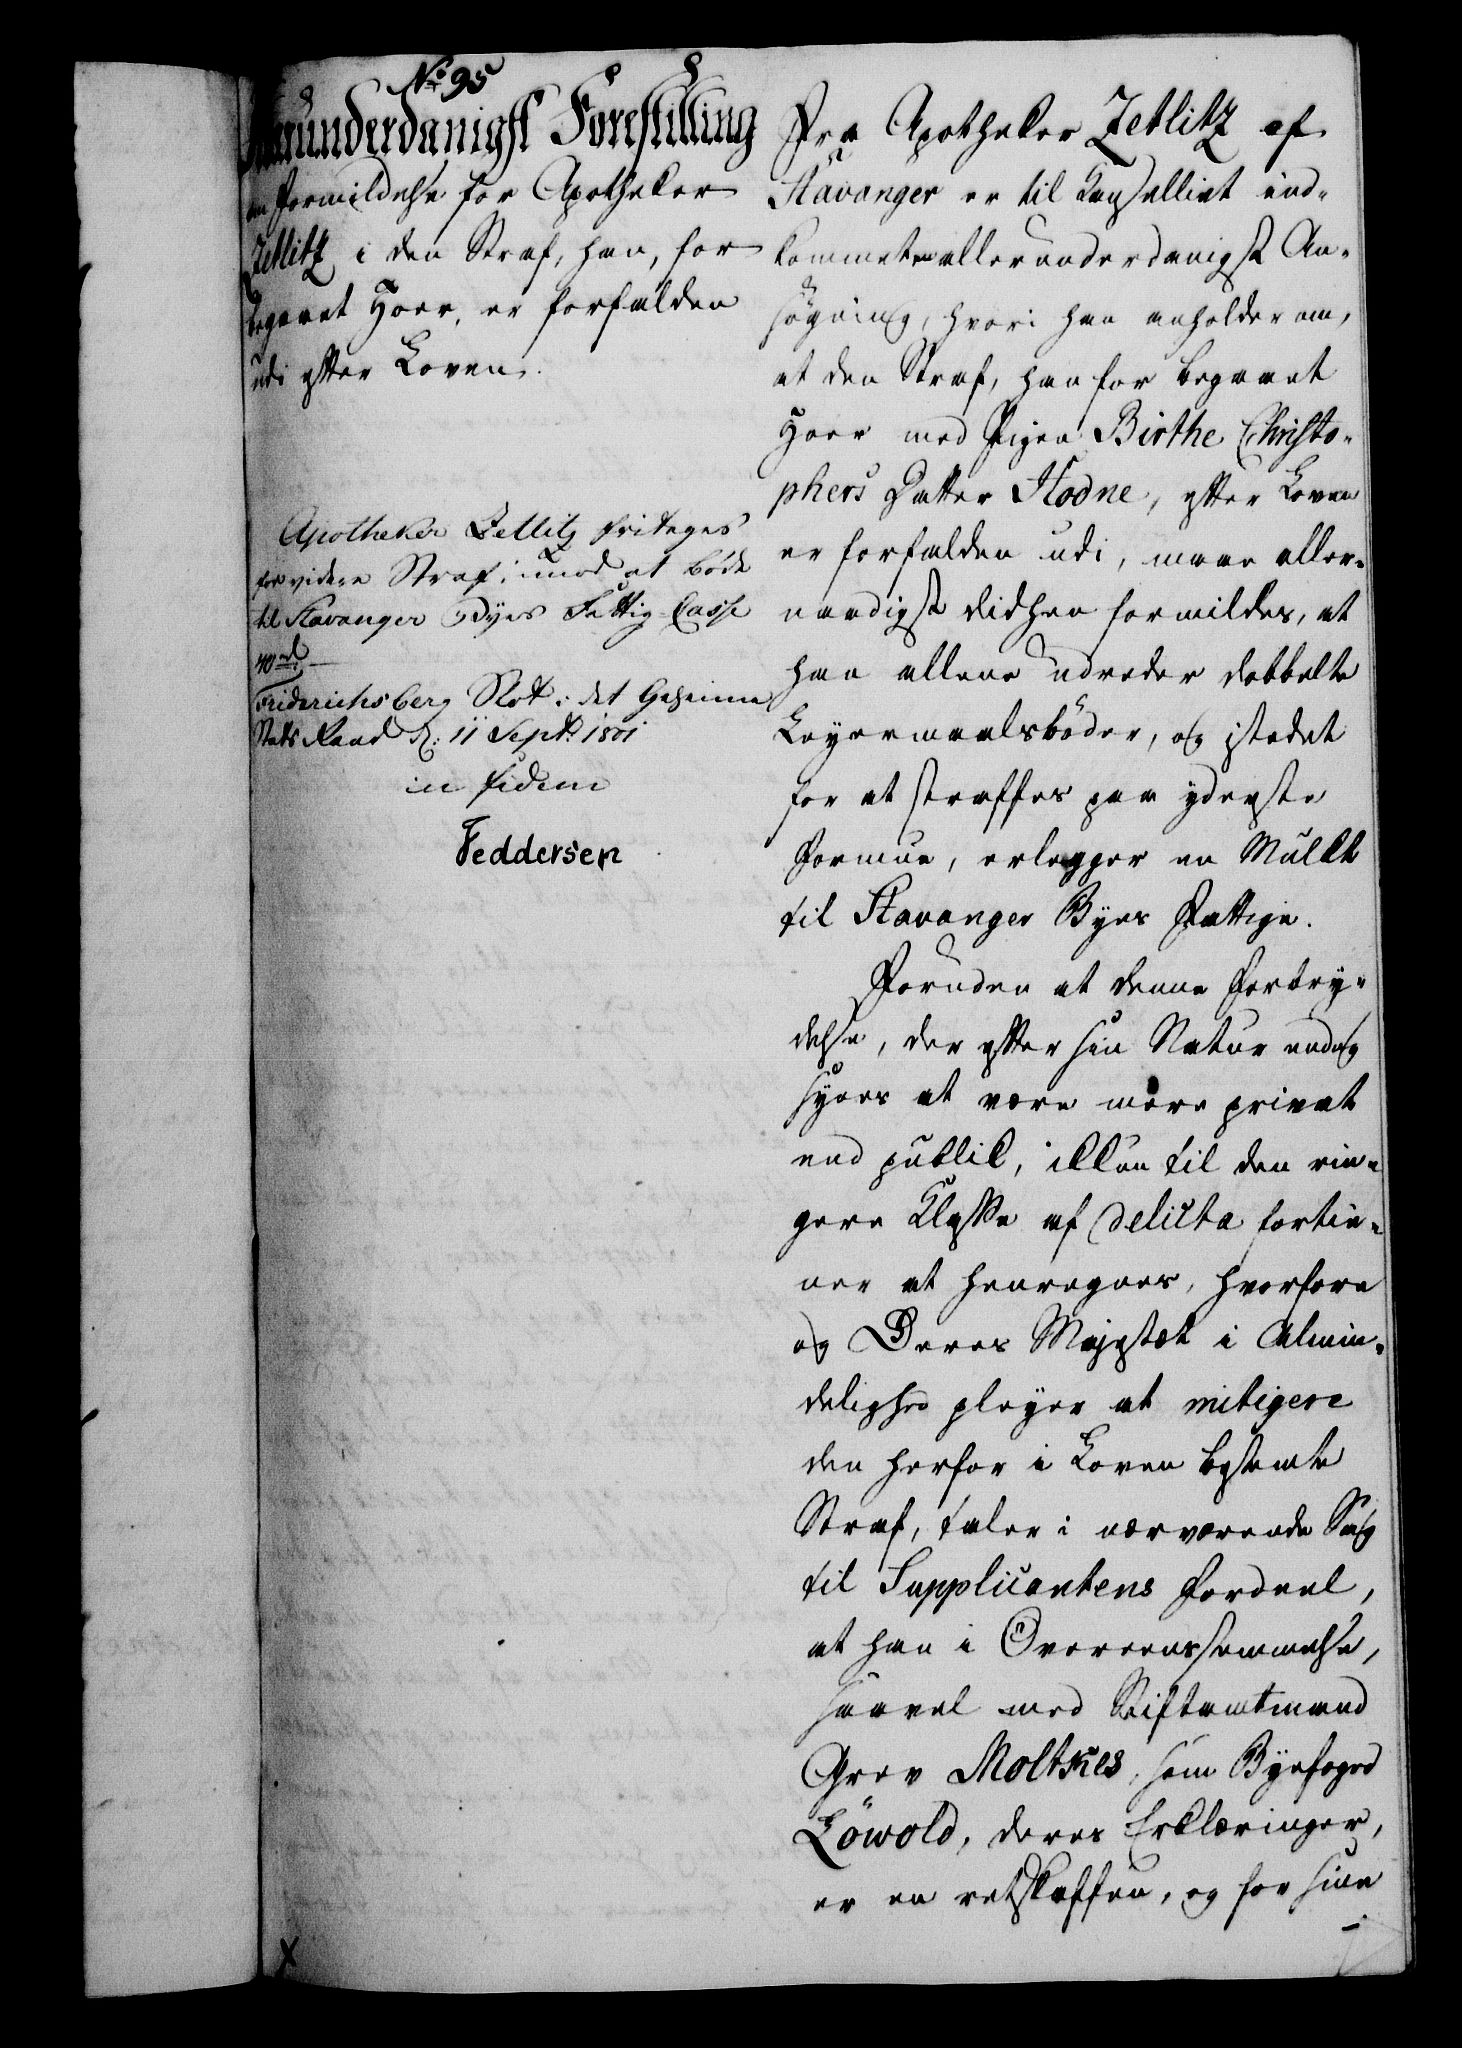 No 95
Allerunderdanigst Forestilling
om Formildelse for Apotheker
Zetlitz i den Straf, han, for
begaaet Hoer, er forfalden
udi efter Loven.
Apotheker Zetlitz fritages
for videre Straf imod at bøde
til Stavanger Byes Fattig-Casse
40 rd.
Friderichsberg Slot i det Geheime
Stats Raad d: 11 Septbr 1801
in fidem
Feddersen
Fra Apotheker Zetlitz af
Stavanger er til Kanselliet ind-
kommet en allerunderdanigst An-
søgning, hvori han anholder om,
at den Straf, han for begaaet
Hoer med Pigen Birthe Christo-
phers Datter Hodne, efter Loven
er forfalden udi, maae aller-
naadigst didhen formildes, at
han allene udreder dobbelte
Leyermaalsbøder, og istedet
for at straffes paa yderste
Formue, erlegger en Mulkt
til Stavanger Byes Fattige.
Foruden at denne Forbry-
delse, der efter sin Natur endog
synes at være mere privat
end publik, ikkun til den rin-
gere Klasse af Delicta fortie-
ner at henregnes, hvorfore
og Deres Majestæt i Almin-
delighed pleyer at mitigere
den herfor i Loven bestemte
Straf, taler i nærværende Sag
til Supplicantens Fordeel,
at han i Overeensstemmelse,
saavel med Stiftamtmand
Grev Moltkes, som Byefoged
Löwold, deres Erklæringer,
er en retskaffen, og for sine